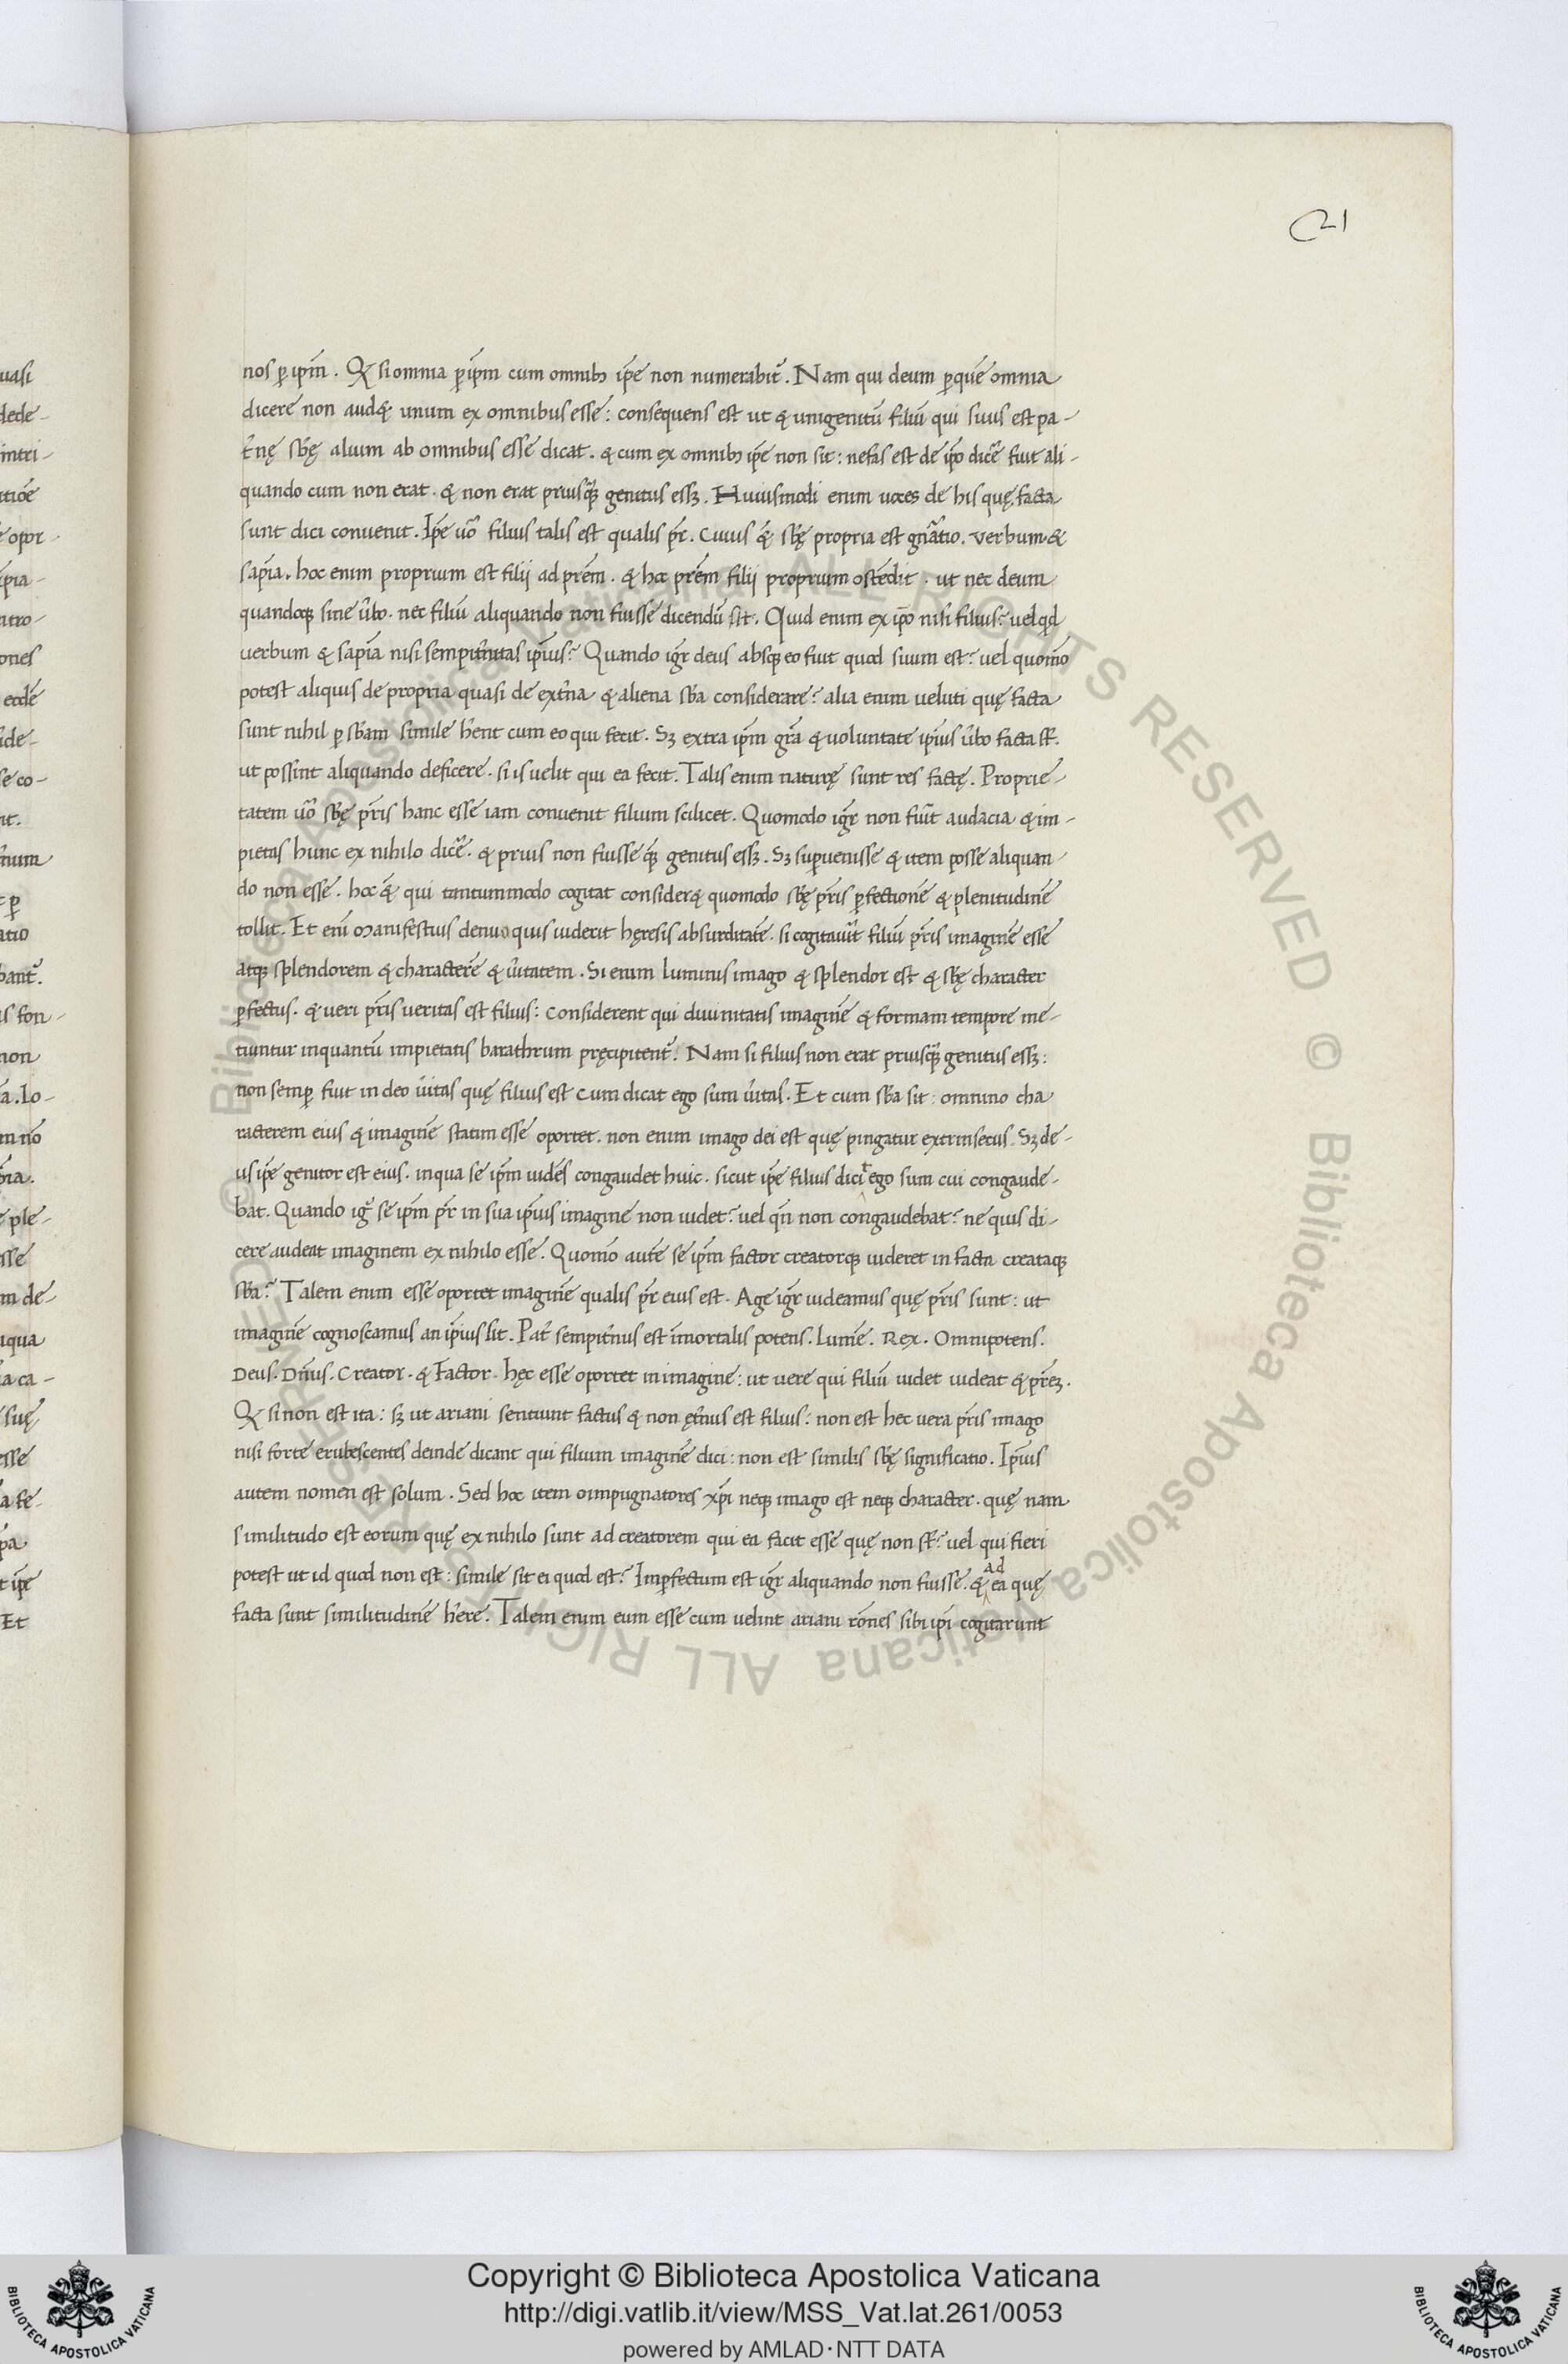 21
nos ꝑ ipm̄. Qɖ si omnia ꝑ ipm̄ cum omnibꝫ ip̄e non numerabit᷑. Nam qui deum ꝑ quē omnia
dicere non audet unum ex omnibus esse: consequens est ut & unigenitū filiū qui suus est pa-
t̄nę sb̄ę alium ab omnibus esse dicat. & cum ex omnibꝫ ip̄e non sit: nefas est de ip̄o dic̄e fuit ali-
quando cum non erat. & non erat priusꝗ̄ genitus essꝫ. Huiusmodi enim uoces de his quę facta
sunt dici conuenit. Ip̄e ūo filius talis est qualis pr̄. Cuius & sb̄ę propria est gn̄atio. Verbum &
sapīa. hoc enim proprium est filii ad prēm. & hoc prēm filii proprium ostēdit. ut nec deum
quandoqꝫ sine ūbo. nec filiū aliquando non fuisse dicendū sit. Quid enim ex ip̄o nisi filius? uel qd
uerbum & sapīa nisi sempit̄nitas ip̄ius? Quando igr̄ deus absqꝫ eo fuit quod suum est? uel quomō
potest aliquis de propria quasi de ext̄na & aliena sb̄a considerare? alia enim ueluti quę facta
sunt nihil ꝑ sb̄am simile h̄ent cum eo qui fecit. Sꝫ extra ipm̄ gr̄a & uoluntate ip̄ius ūbo facta st̄.
ut possint aliquando deficere. si is uelit qui ea fecit. Talis enim naturę sunt res factę. Proprie-
tatem ūo sb̄ę pr̄is hanc esse iam conuenit filium scilicet. Quomodo igr̄ non fūit audacia & im-
pietas hunc ex nihilo dic̄e. & prius non fuisse ꝗ̄ genitus essꝫ. Sꝫ suꝑuenisse & item posse aliquan-
do non esse. hoc & qui tantummodo cogitat consideret quomodo sb̄ę pr̄is ꝑfectionē & plenitudinē
tollit. Et enī manifestius denuo quis uiderit hęresis absurditatē. si cogitaūit filiū pr̄is imaginē esse
atqꝫ splendorem & characterē & ūitatem. Si enim luminis imago & splendor est & sb̄ę character
ꝑfectus. & ueri pr̄is ueritas est filius: considerent qui diuinitatis imaginē & formam tempore me-
tiuntur inquantū impietatis barathrum pręcipitent᷑. Nam si filius non erat priusꝗ̄ genitus essꝫ:
non semꝑ fuit in deo ūitas quę filius est cum dicat ego sum ūitas. Et cum sb̄a sit: omnino cha
racterem eius & imaginē statim esse oportet. non enim imago dei est quę pingatur extrinsecus. Sꝫ de-
us ip̄e genitor est eius. in qua se ipm̄ uidēs congaudet huic. sicut ip̄e filius dicit ego sum cui congaude-
bat. Quando ig᷑ se ipm̄ pr̄ in sua ip̄ius imagine non uidet? uel qn̄ non congaudebat? ne quis di-
cere audeat imaginem ex nihilo esse. Quomō autē se ipm̄ factor creatorqꝫ uideret in facta creataqꝫ
sb̄a? Talem enim esse oportet imaginē qualis pr̄ eius est. Age igr̄ uideamus quę pr̄is sunt: ut
imaginē cognoscamus an ip̄ius sit. Pat̄ sempit̄nus est īmortalis potens. Lumē. Rex. Omnipotens.
Deus. Dn̄us. Creator. & Factor. hęc esse oportet in imagine: ut uere qui filiū uidet uideat & prēꝫ.
Qɖ si non est ita: sꝫ ut ariani sentiunt factus & non ęt̄nus est filius: non est hec uera pr̄is imago
nisi forte erubescentes deinde dicant qui filium imaginē dici: non est similis sb̄ę significatio. Ip̄ius
autem nomen est solum. Sed hoc item o impugnatores xp̄i neqꝫ imago est neqꝫ character. quę nam
similitudo est eorum quę ex nihilo sunt ad creatorem qui ea facit esse quę non st̄? uel qui fieri
potest ut id quod non est: simile sit ei quod est? Imꝑfectum est igr̄ aliquando non fuisse. & ad ea quę
facta sunt similitudinē h̄ere. Talem enim eum esse cum uelint ariani rōnes sibi ipi cogitarunt
© Biblioteca Apostolica Vaticana ALL RIGHTS RESERVED © Biblioteca Apostolica Vaticana ALL RIGHTS RESERVED
Copyright © Biblioteca Apostolica Vaticana
http://digi.vatlib.it/view/MSS_Vat.lat.261/0053
powered by AMLAD·NTT DATA
BIBLIOTECA APOSTOLICA VATICANA
BIBLIOTECA APOSTOLICA VATICANA